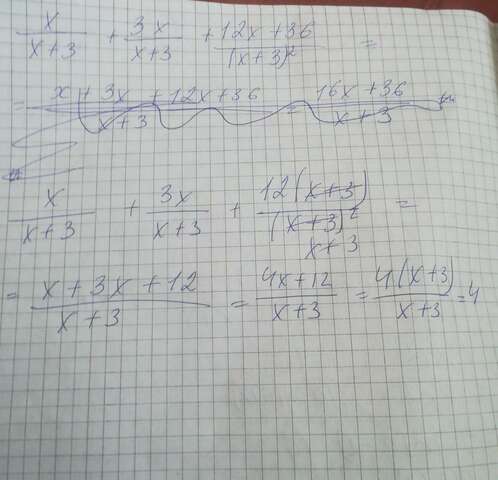 x/(x+3) + 3x/(x+3) + (12x+36)/(x+3)² =
= (x+3x+12x+36)/(x+3) = (16x+36)/(x+3)
x/(x+3) + 3x/(x+3) + 12(x+3)/(x+3)² x+3 =
= (x+3x+12)/(x+3) = (4x+12)/(x+3) = 4(x+3)/(x+3) = 4